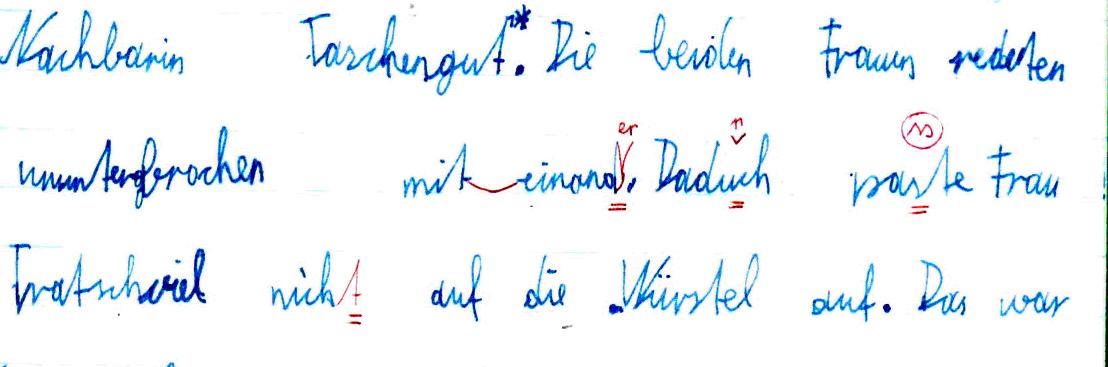 Nachbarin Taschengut.* Die beiden Frauen redeten
ununterbrochen mit einand er. Daduch paste Frau
Tratschviel nicht auf die Würstel auf. Das war